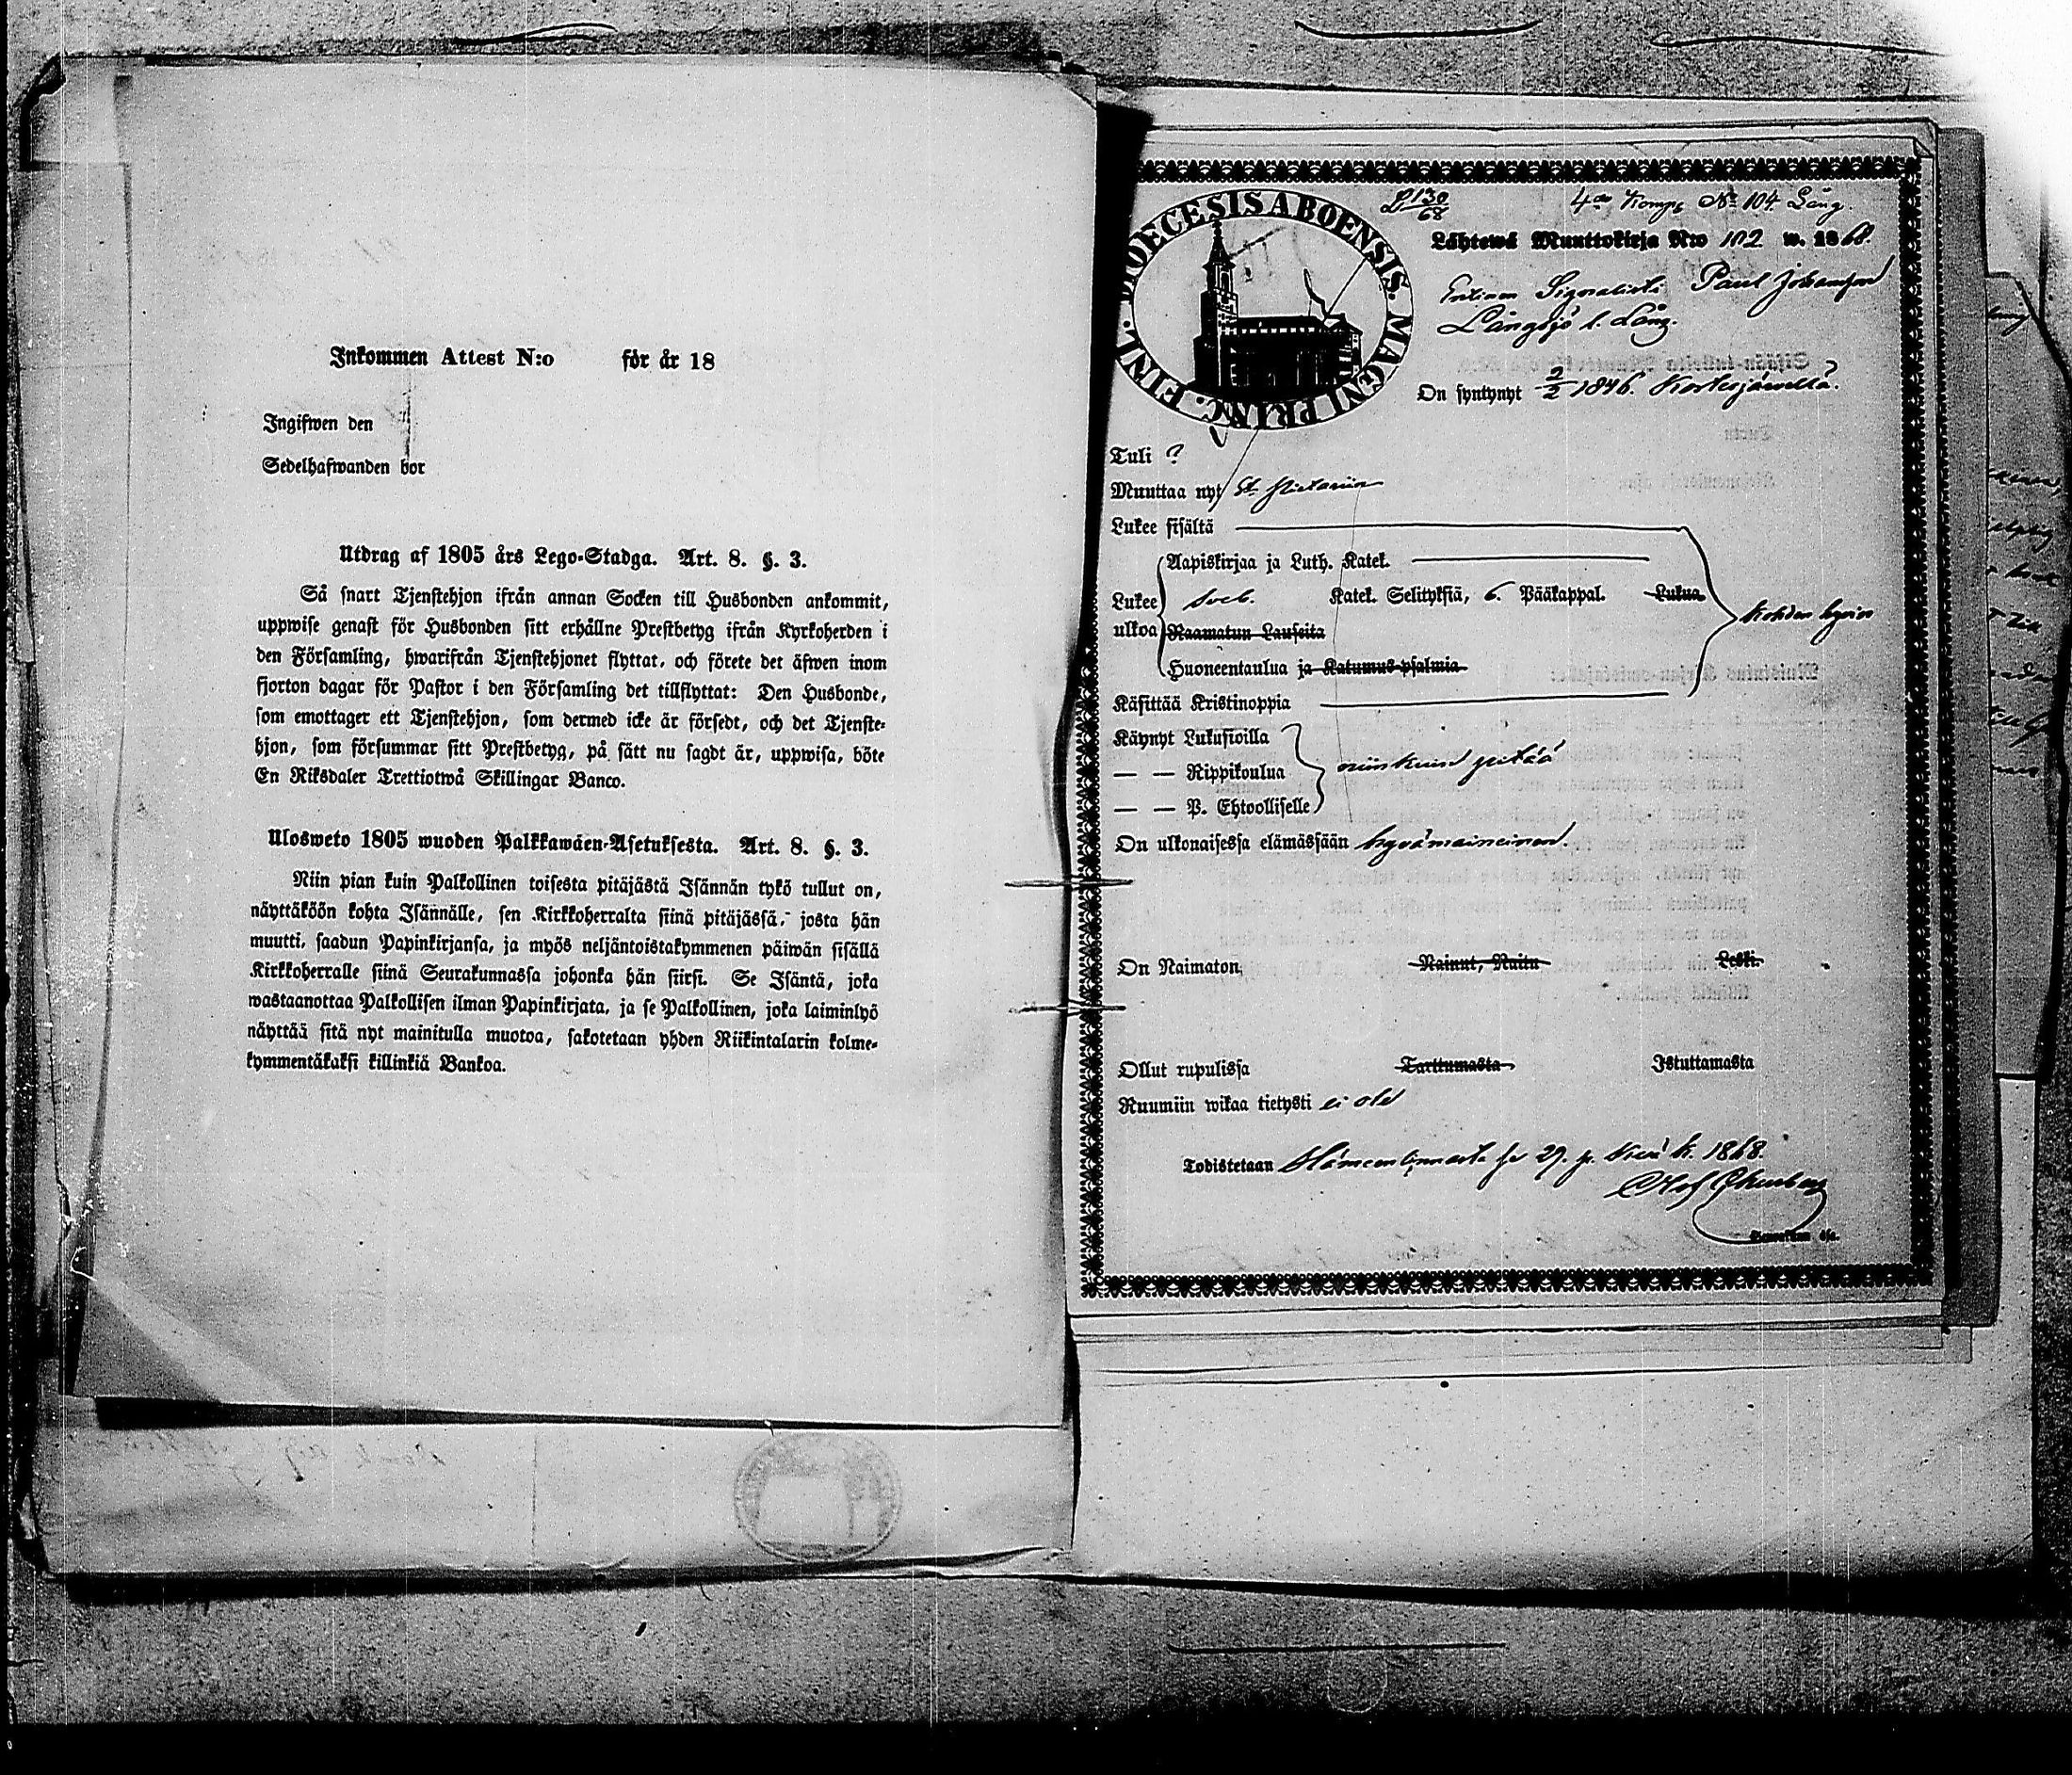 Inkommen Attest N:o för år 18
Ingifwen den
Sedelhafwanden bor
Utdrag af 1805 års Lego-Stadga. Art. 8. §. 3.
Så snart Tjenstehjon ifrån annan Socken till Husbonden ankommit,
uppwise genast för Husbonden sitt erhållne Prestbetyg ifrån Kyrkoherden i
den Församling, hwarifrån Tjenstehjonet flyttat, och förete det äfwen inom
fjorton dagar för Pastor i den Församling det tillflyttat: Den Husbonde,
som emottager ett Tjenstehjon, som dermed icke är försedt, och det Tjenste-
hjon, som försummar sitt Prestbetyg, på sätt nu sagdt är, uppwisa, böte
En Riksdaler Trettiotwå Skillingar Banco.
Ulosweto 1805 wuoden Palkkawäen-Asetuksesta. Art. 8. §. 3.
Niin pian kuin Palkollinen toisesta pitäjästä Isännän tykö tullut on,
näyttäköön kohta Isännälle, sen Kirkkoherralta siinä pitäjässä, josta hän
muutti, saadun Papinkirjansa, ja myös neljäntoistakymmenen päiwän sisällä
Kirkkoherralle siinä Seurakunnassa johonka hän siirsi. Se Isäntä, joka
wastaanottaa Palkollisen ilman Papinkirjata, ja se Palkollinen, joka laiminlyö
näyttää sitä nyt mainitulla muotoa, sakotetaan yhden Riikintalarin kolme-
kymmentäkaksi killinkiä Bankoa.
DIOECESIS ABOENSIS. MAGNI PRINC. FINL.
130/68
4de Komp. No 104. Läng.
Lähtewä Muuttokirja N:o 102 w. 1868.
Entinen Signalisti Paul Johansson
Långsjö l. Läng.
On syntynyt 2/2 1846. Kortesjärwellä.
Tuli ?
Muuttaa nyt St. Pietariin
Lukee sisältä
Aapiskirjaa ja Luth. Katek.
Lukee Sveb. Katek. Selityksiä, 6. Pääkappal. Lukua
ulkoa Raamatun Lauseita
kohdan hywin
Huoneentaulua ja Katumus-psalmia
Käsittää Kristinoppia
Käynyt Lukusioilla
— — Rippikoulua niinkuin pitää
— — P. Ehtoolliselle
On ulkonaisessa elämässään hywämaineinen.
On Naimaton, Nainut, Naitu Leski.
Ollut rupulissa Tarttumasta Istuttamasta
Ruumiin wikaa tietysti ei ole
Todistetaan Hämeenlinnasta se 29. p. Kesä k. 1868.